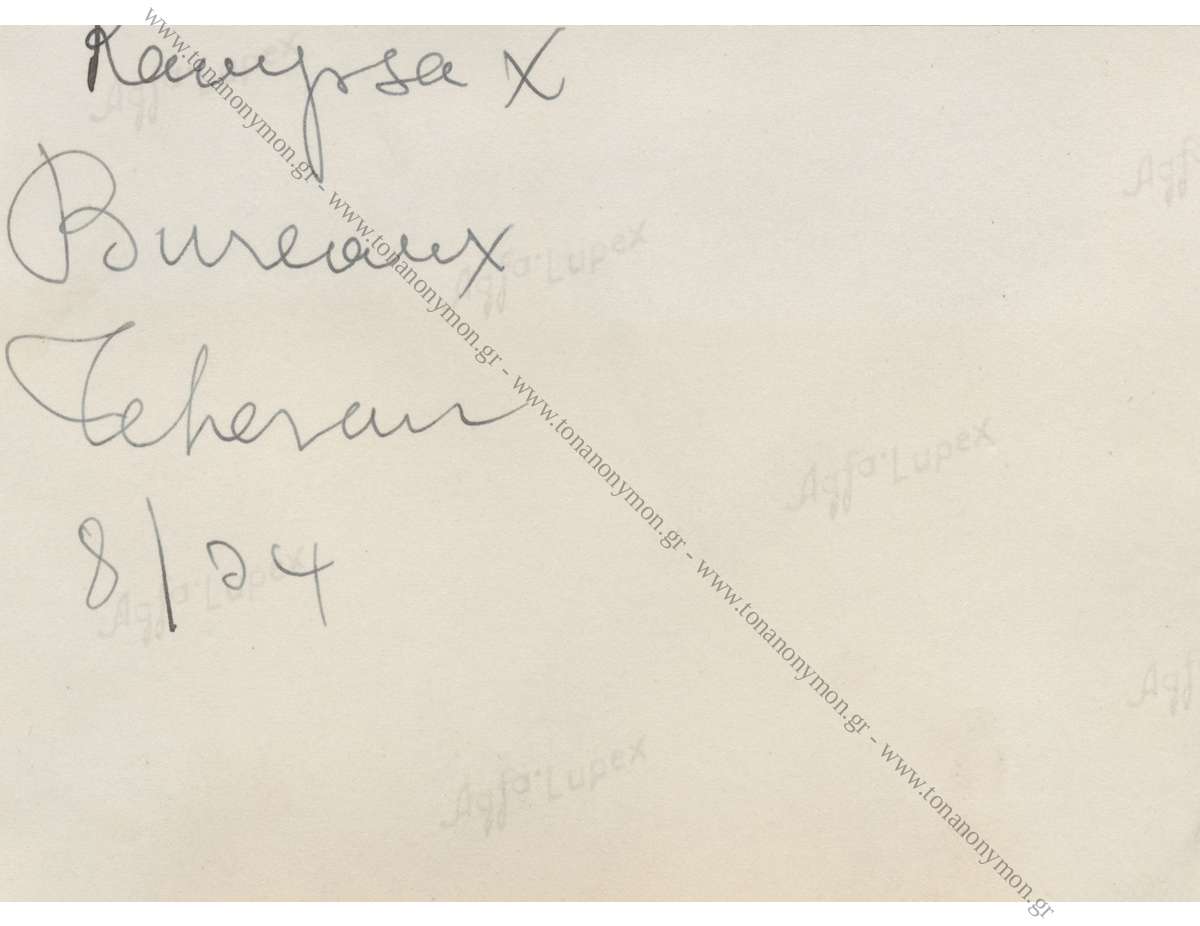 Kampsa X
Bureaux
Teheran
www.tonanonymon.gr - www.tonanonymon.gr - www.tonanonymon.gr - www.tonanonymon.gr - www.tonanonymon.gr
Agfa-Lupex
Agfa-Lupex
Agfa-Lupex
Agfa-Lupex